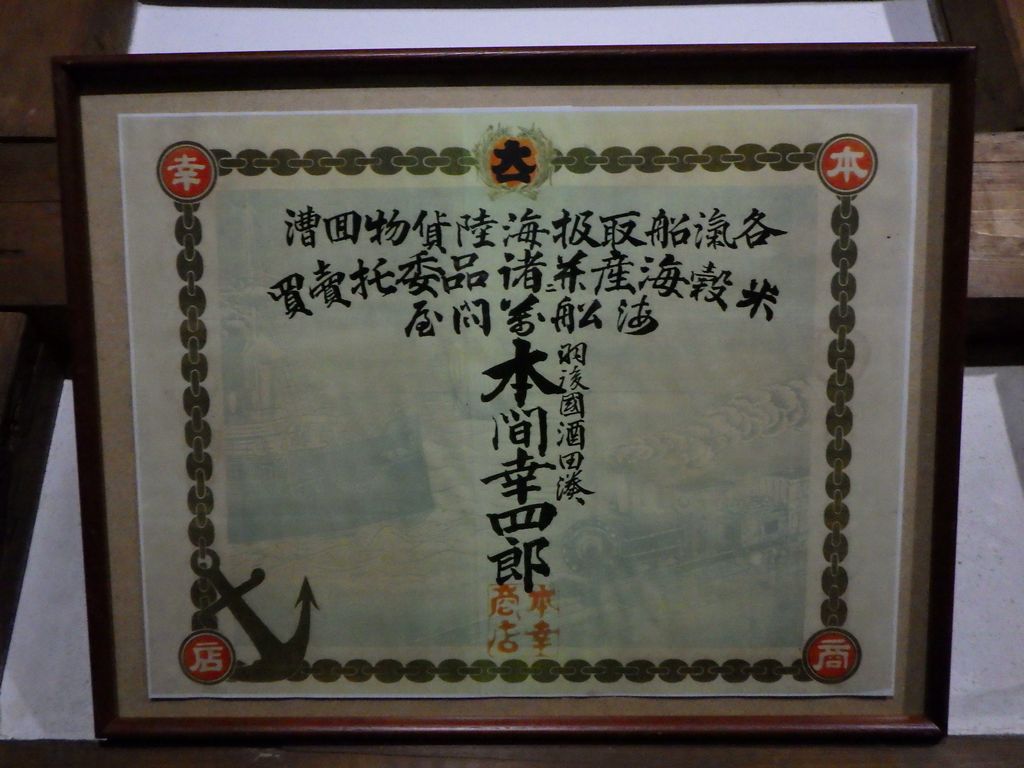 本
幸
各滊船取扱海陸貨物回漕
米穀海産并ニ諸品委托賣買
海船萬問屋
羽後國酒田湊
本間幸四郎
本幸
商店
商
店